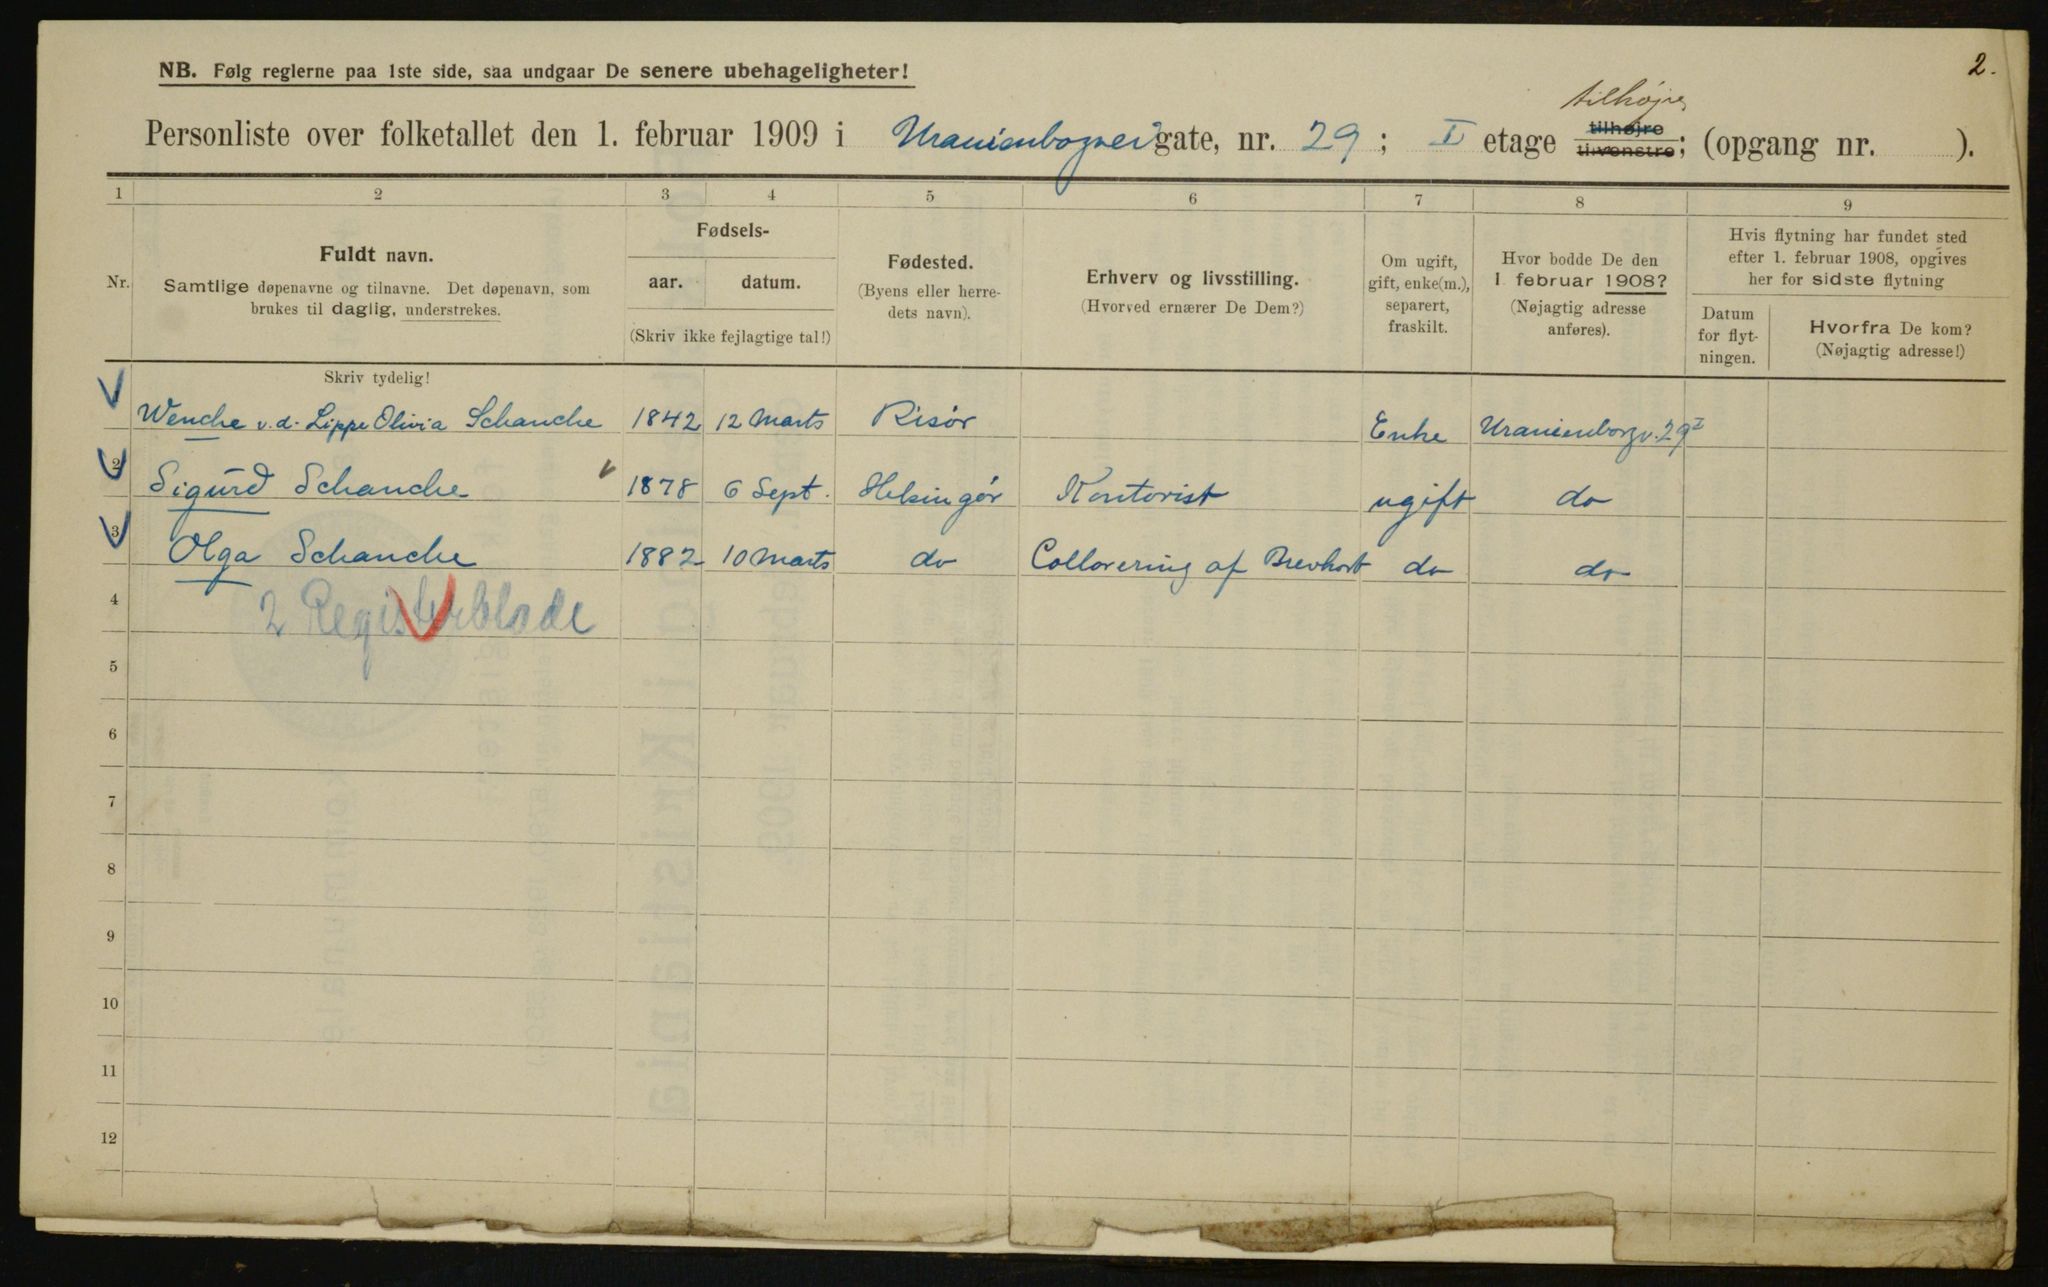 2.
NB. Følg reglerne paa 1ste side, saa undgaar De senere ubehageligheter!
tilhøjre
Personliste over folketallet den 1. februar 1909 i Uranienborgvei gate, nr. 29; I etage tilhøjre tilvenstre; (opgang nr. ).
1 2 3 4 5 6 7 8 9
Nr.
Fuldt navn.
Samtlige døpenavne og tilnavne. Det døpenavn, som
brukes til daglig, understrekes.
Fødsels-
aar. datum.
(Skriv ikke fejlagtige tal!)
Fødested.
(Byens eller herre-
dets navn).
Erhverv og livsstilling.
(Hvorved ernærer De Dem?)
Om ugift,
gift, enke(m.),
separert,
fraskilt.
Hvor bodde De den
1 februar 1908?
(Nøjagtig adresse
anføres).
Hvis flytning har fundet sted
efter 1. februar 1908, opgives
her for sidste flytning
Datum
for flyt-
ningen.
Hvorfra De kom?
(Nøjagtig adresse!)
Skriv tydelig!
Wenche v.d. Lippe Olivia Schanche 1842 12 Marts Risør Enke Uranienborgv. 29 I
2 Sigurd Schanche 1878 6 Sept. Helsingør Kontorist ugift do
3 Olga Schanche 1882 10 Marts do Collorering af Brevkort do do
4 2 Registerblade
5
6
7
8
9
10
11
12